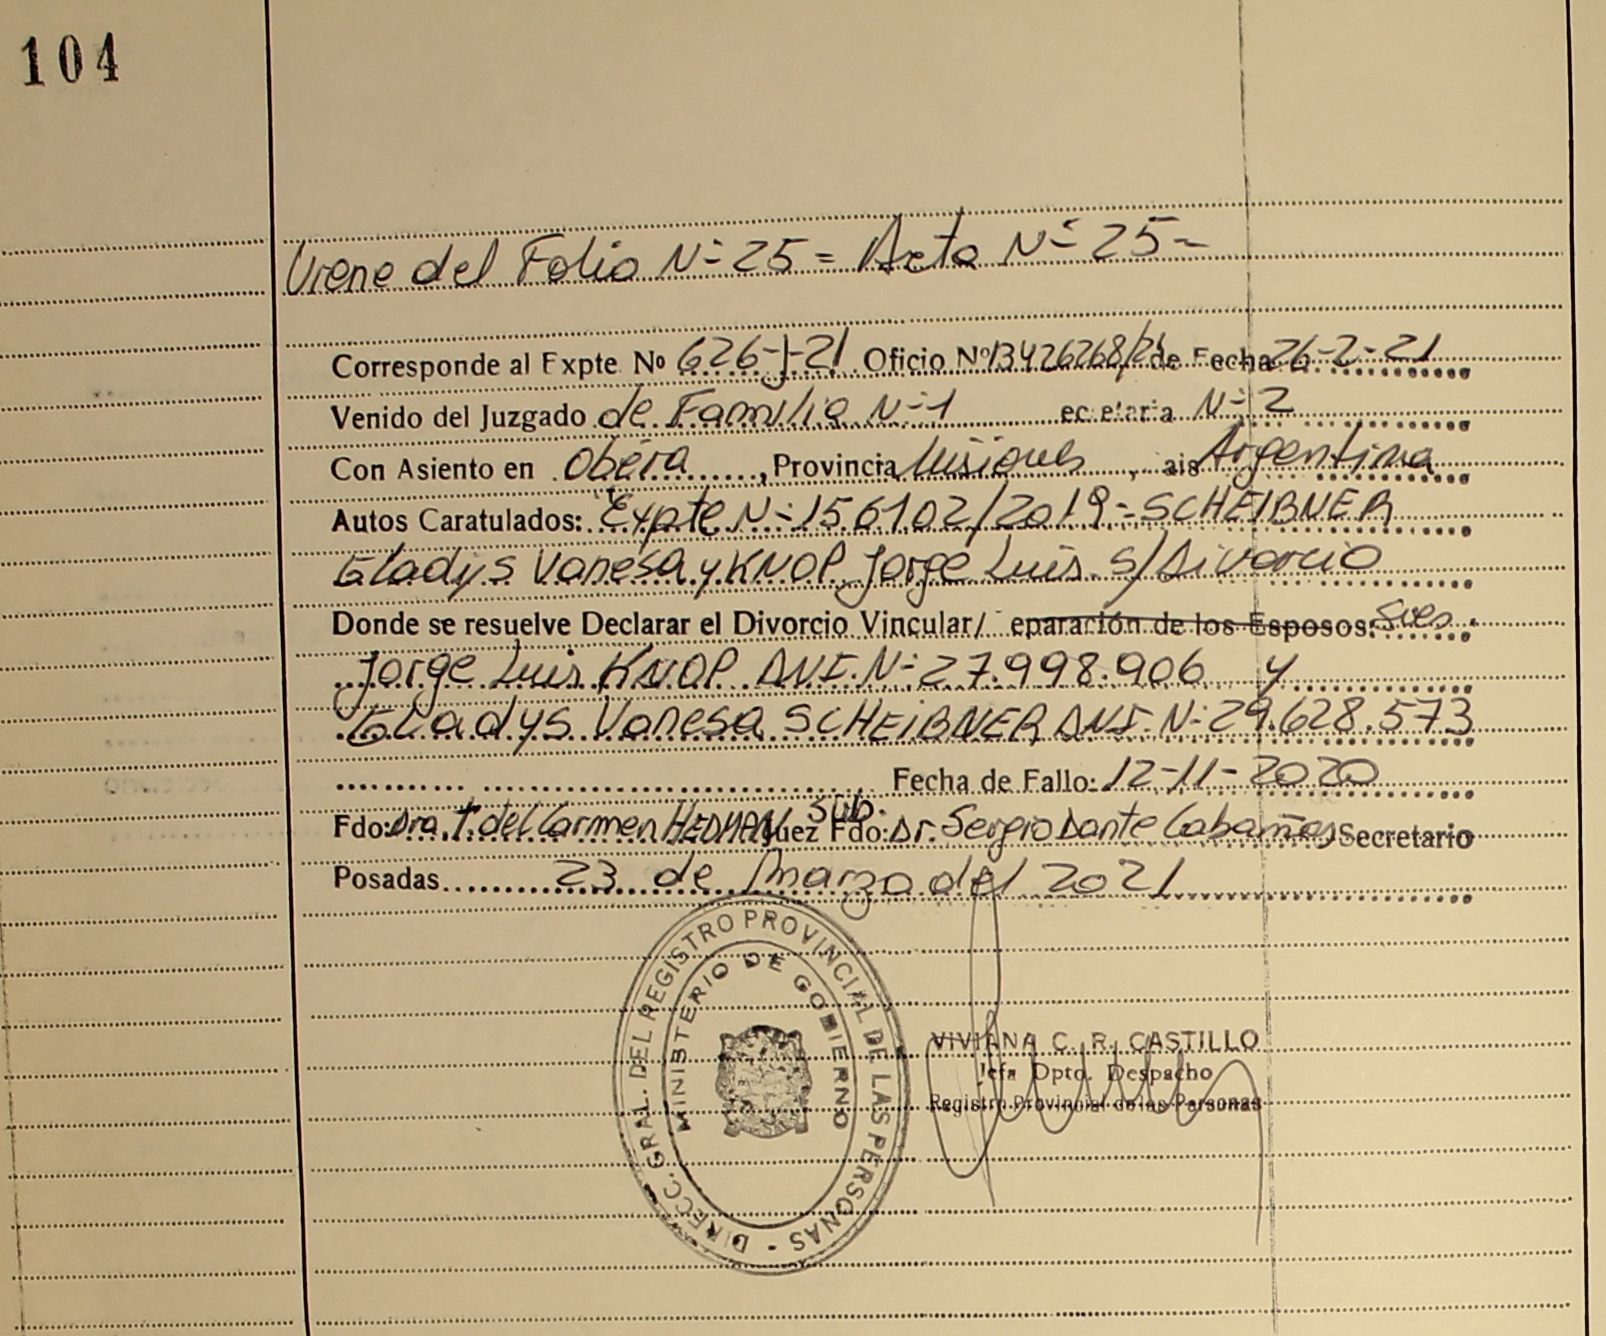 104
Viene del Folio Nº 25 = Acta Nº 25 =
Corresponde al Expte No 626-J-21 Oficio Nº 13426268/21 de Fecha 26-2-21
Venido del Juzgado de Familia Nº 1 ecretaria Nº 2
Con Asiento en Oberá, Provincia Misiones, ais Argentina
Autos Caratulados: "Expte Nº 156102/2019 - SCHEIBNER
Gladys Vanesa y KNOP Jorge Luis S/Divorcio
Donde se resuelve Declarar el Divorcio Vincular/ eparación de los Esposos: Sres.
Jorge Luis KNOP DNI. Nº 27.998.906 y
Gladys Vanesa SCHEIBNER DNI. Nº 29.628.573
Fecha de Fallo: 12-11-2020
Fdo: Dra. T. del Carmen HEDMAN Juez Sub. Fdo: Dr. Sergio Dante Cabañas Secretario
Posadas 23 de Marzo del 2021
DIRECC. GRAL. DEL REGISTRO PROVINCIAL DE LAS PERSONAS -
MINISTERIO DE GOBIERNO
VIVIANA C. R. CASTILLO
Jefa Dpto. Despacho
Registro Provincial de las Personas